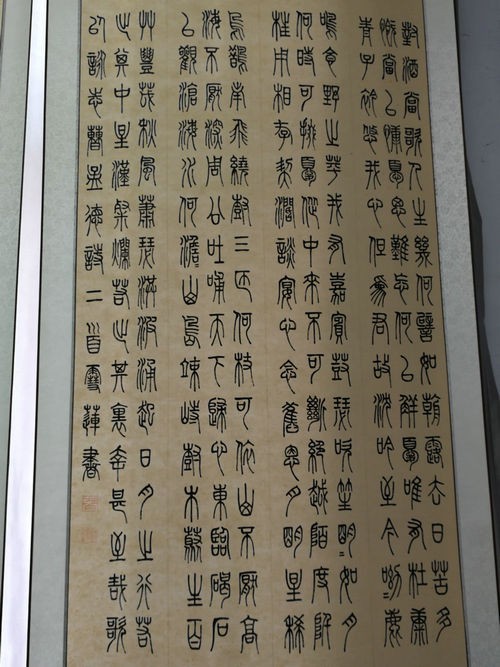 對酒當歌人生幾何譬如朝露去日苦多
慨當以慷憂思難忘何以解憂唯有杜康
青〻子衿悠〻我心但為君故沈吟至今呦〻鹿
鳴食野之苹我有嘉賓鼓瑟吹笙明〻如月
何時可掇憂從中來不可斷絕越陌度阡
枉用相存契闊談宴心念舊恩月明星稀
烏鵲南飛繞樹三匝何枝可依山不厭高
海不厭深周公吐哺天下歸心東臨碣石
以觀滄海水何澹〻山島竦峙樹木叢生百
艸豐茂秋風蕭瑟洪波涌起日月之行若
出其中星漢粲爛若出其裏幸甚至哉歌
以詠志曹孟德詩二首雪蓮書